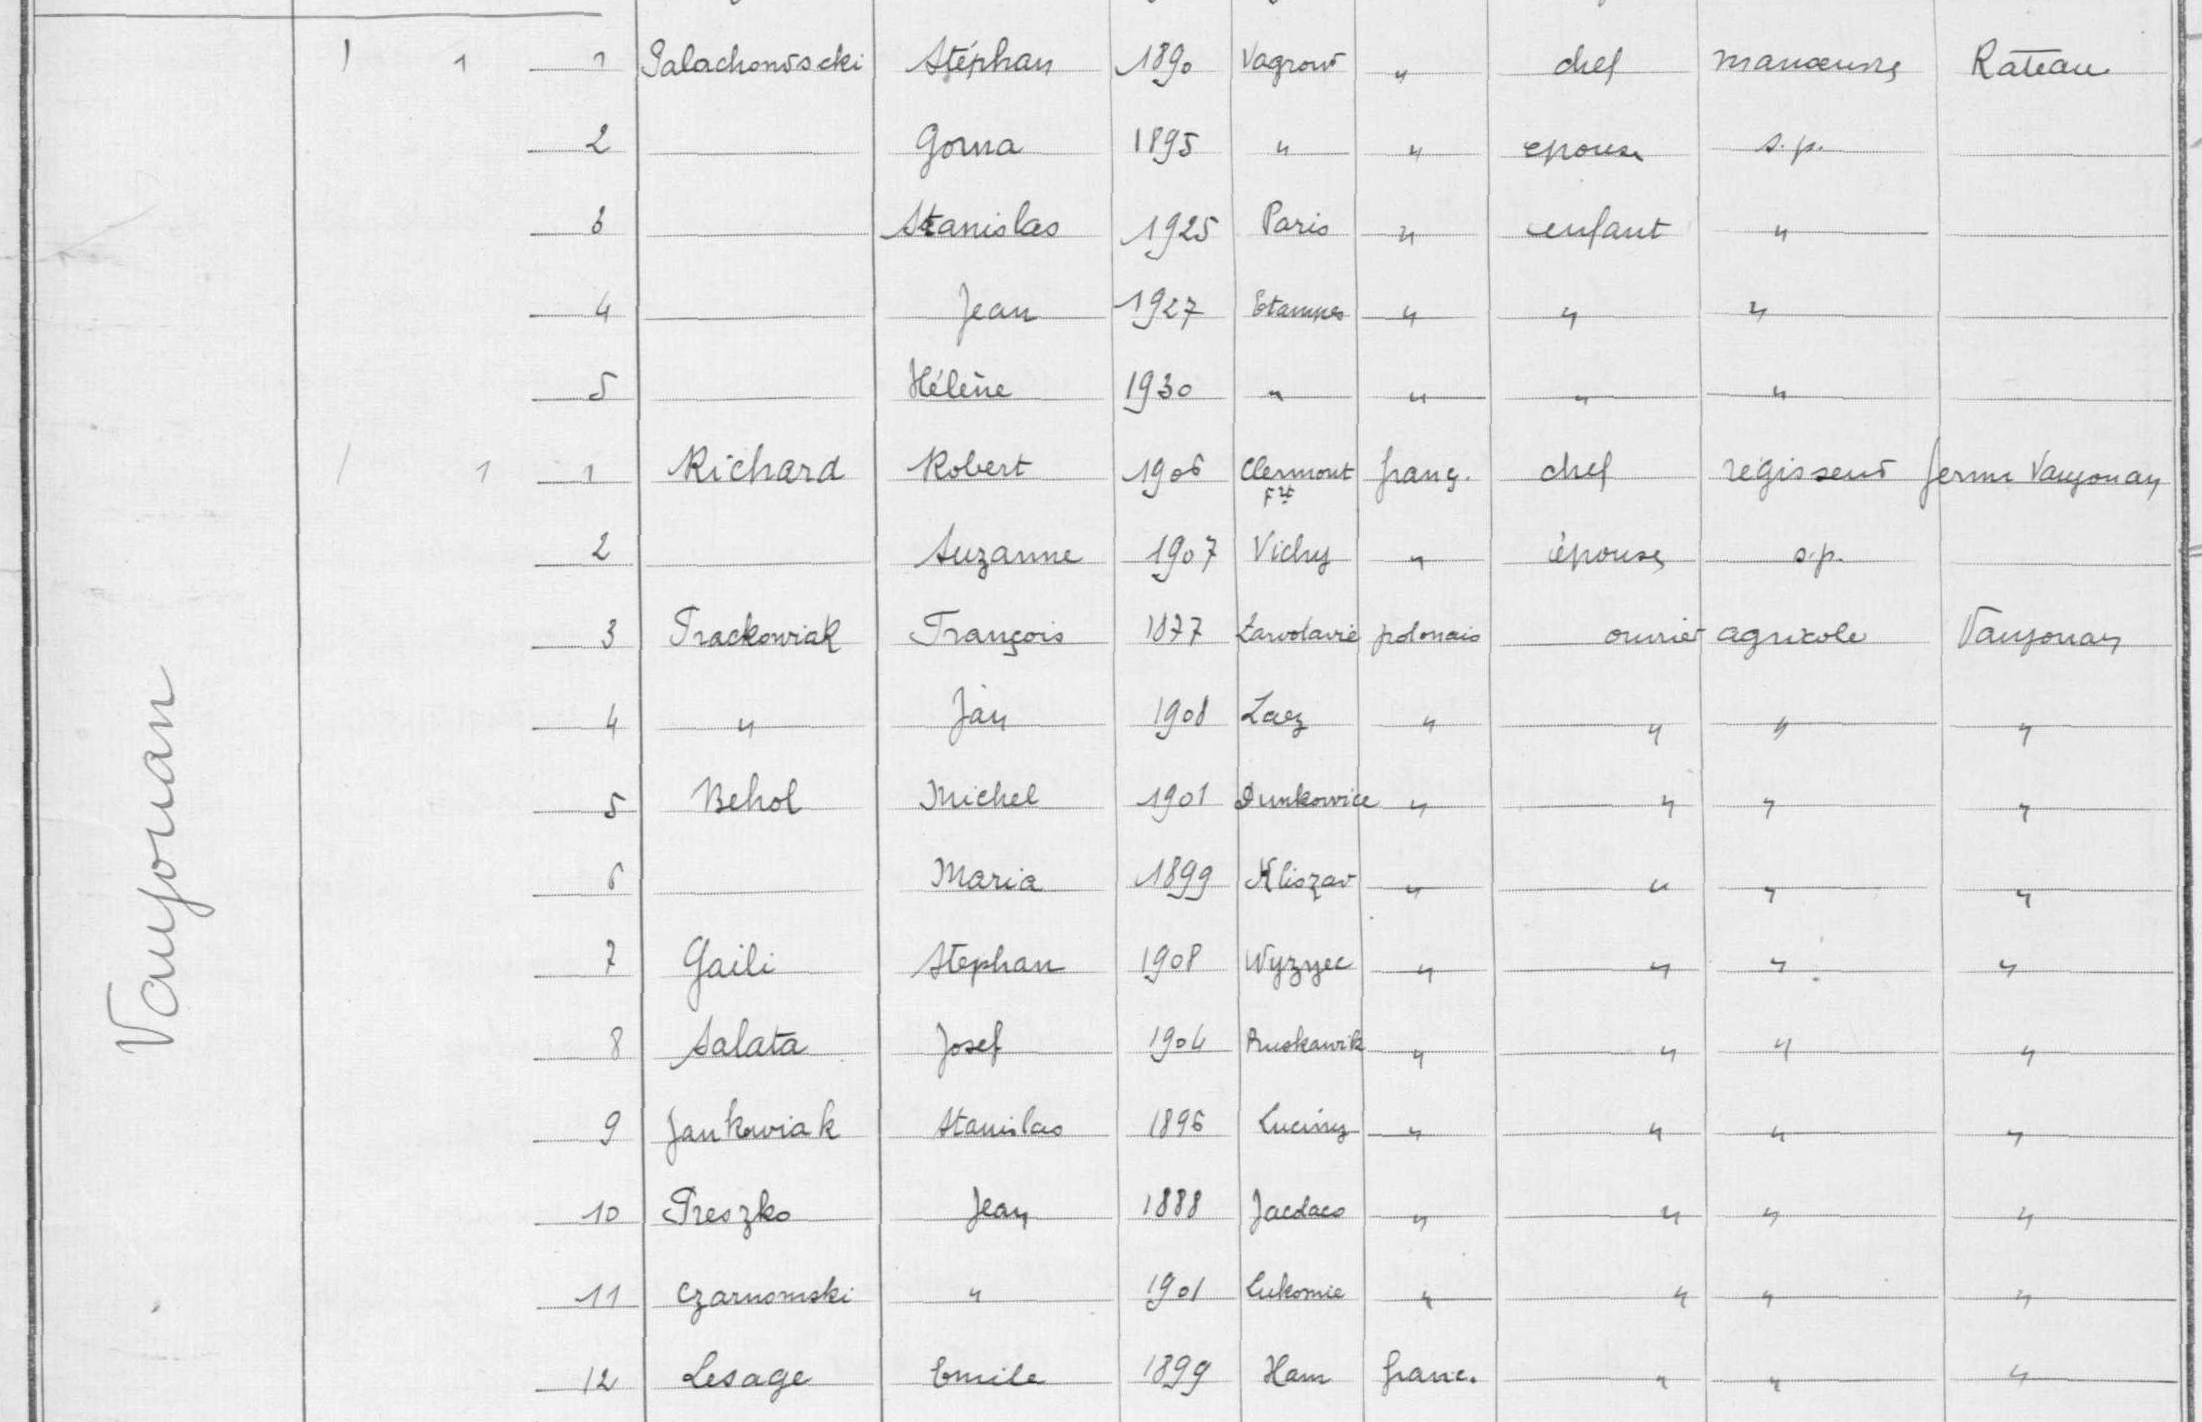 1 1 1 Palachonoscki Stéphan 1890 Vagrow " chef manœuvre Rateau
2 Gorna 1895 " " epouse s.p.
3 Stanislas 1925 Paris " enfant "
4 Jean 1927 Etampes " " "
5 Hélène 1930 " " " "
1 1 1 Richard Robert 1906 Clermont Ft franç. chef régisseur ferme Vaujouan
2 Suzanne 1907 Vichy " épouse s.p.
3 Trackowiak François 1877 polonais ouvrier agricole Vaujouan
4 " Jan 1908 " " " "
5 Behol Michel 1901 Dunkowice " " " "
6 Maria 1899 Kliszav " " " "
7 Gaili Stephan 1908 Wyzyec " " " "
8 Salata Josef 1904 " " " "
9 Jankowiak Stanislas 1896 Luciny " " " "
10 Preszko Jean 1888 Jacdaco " " " "
11 Czarnomski " 1901 Lukomie " " " "
12 Lesage Emile 1899 Ham franc. " " "
Vaujouan